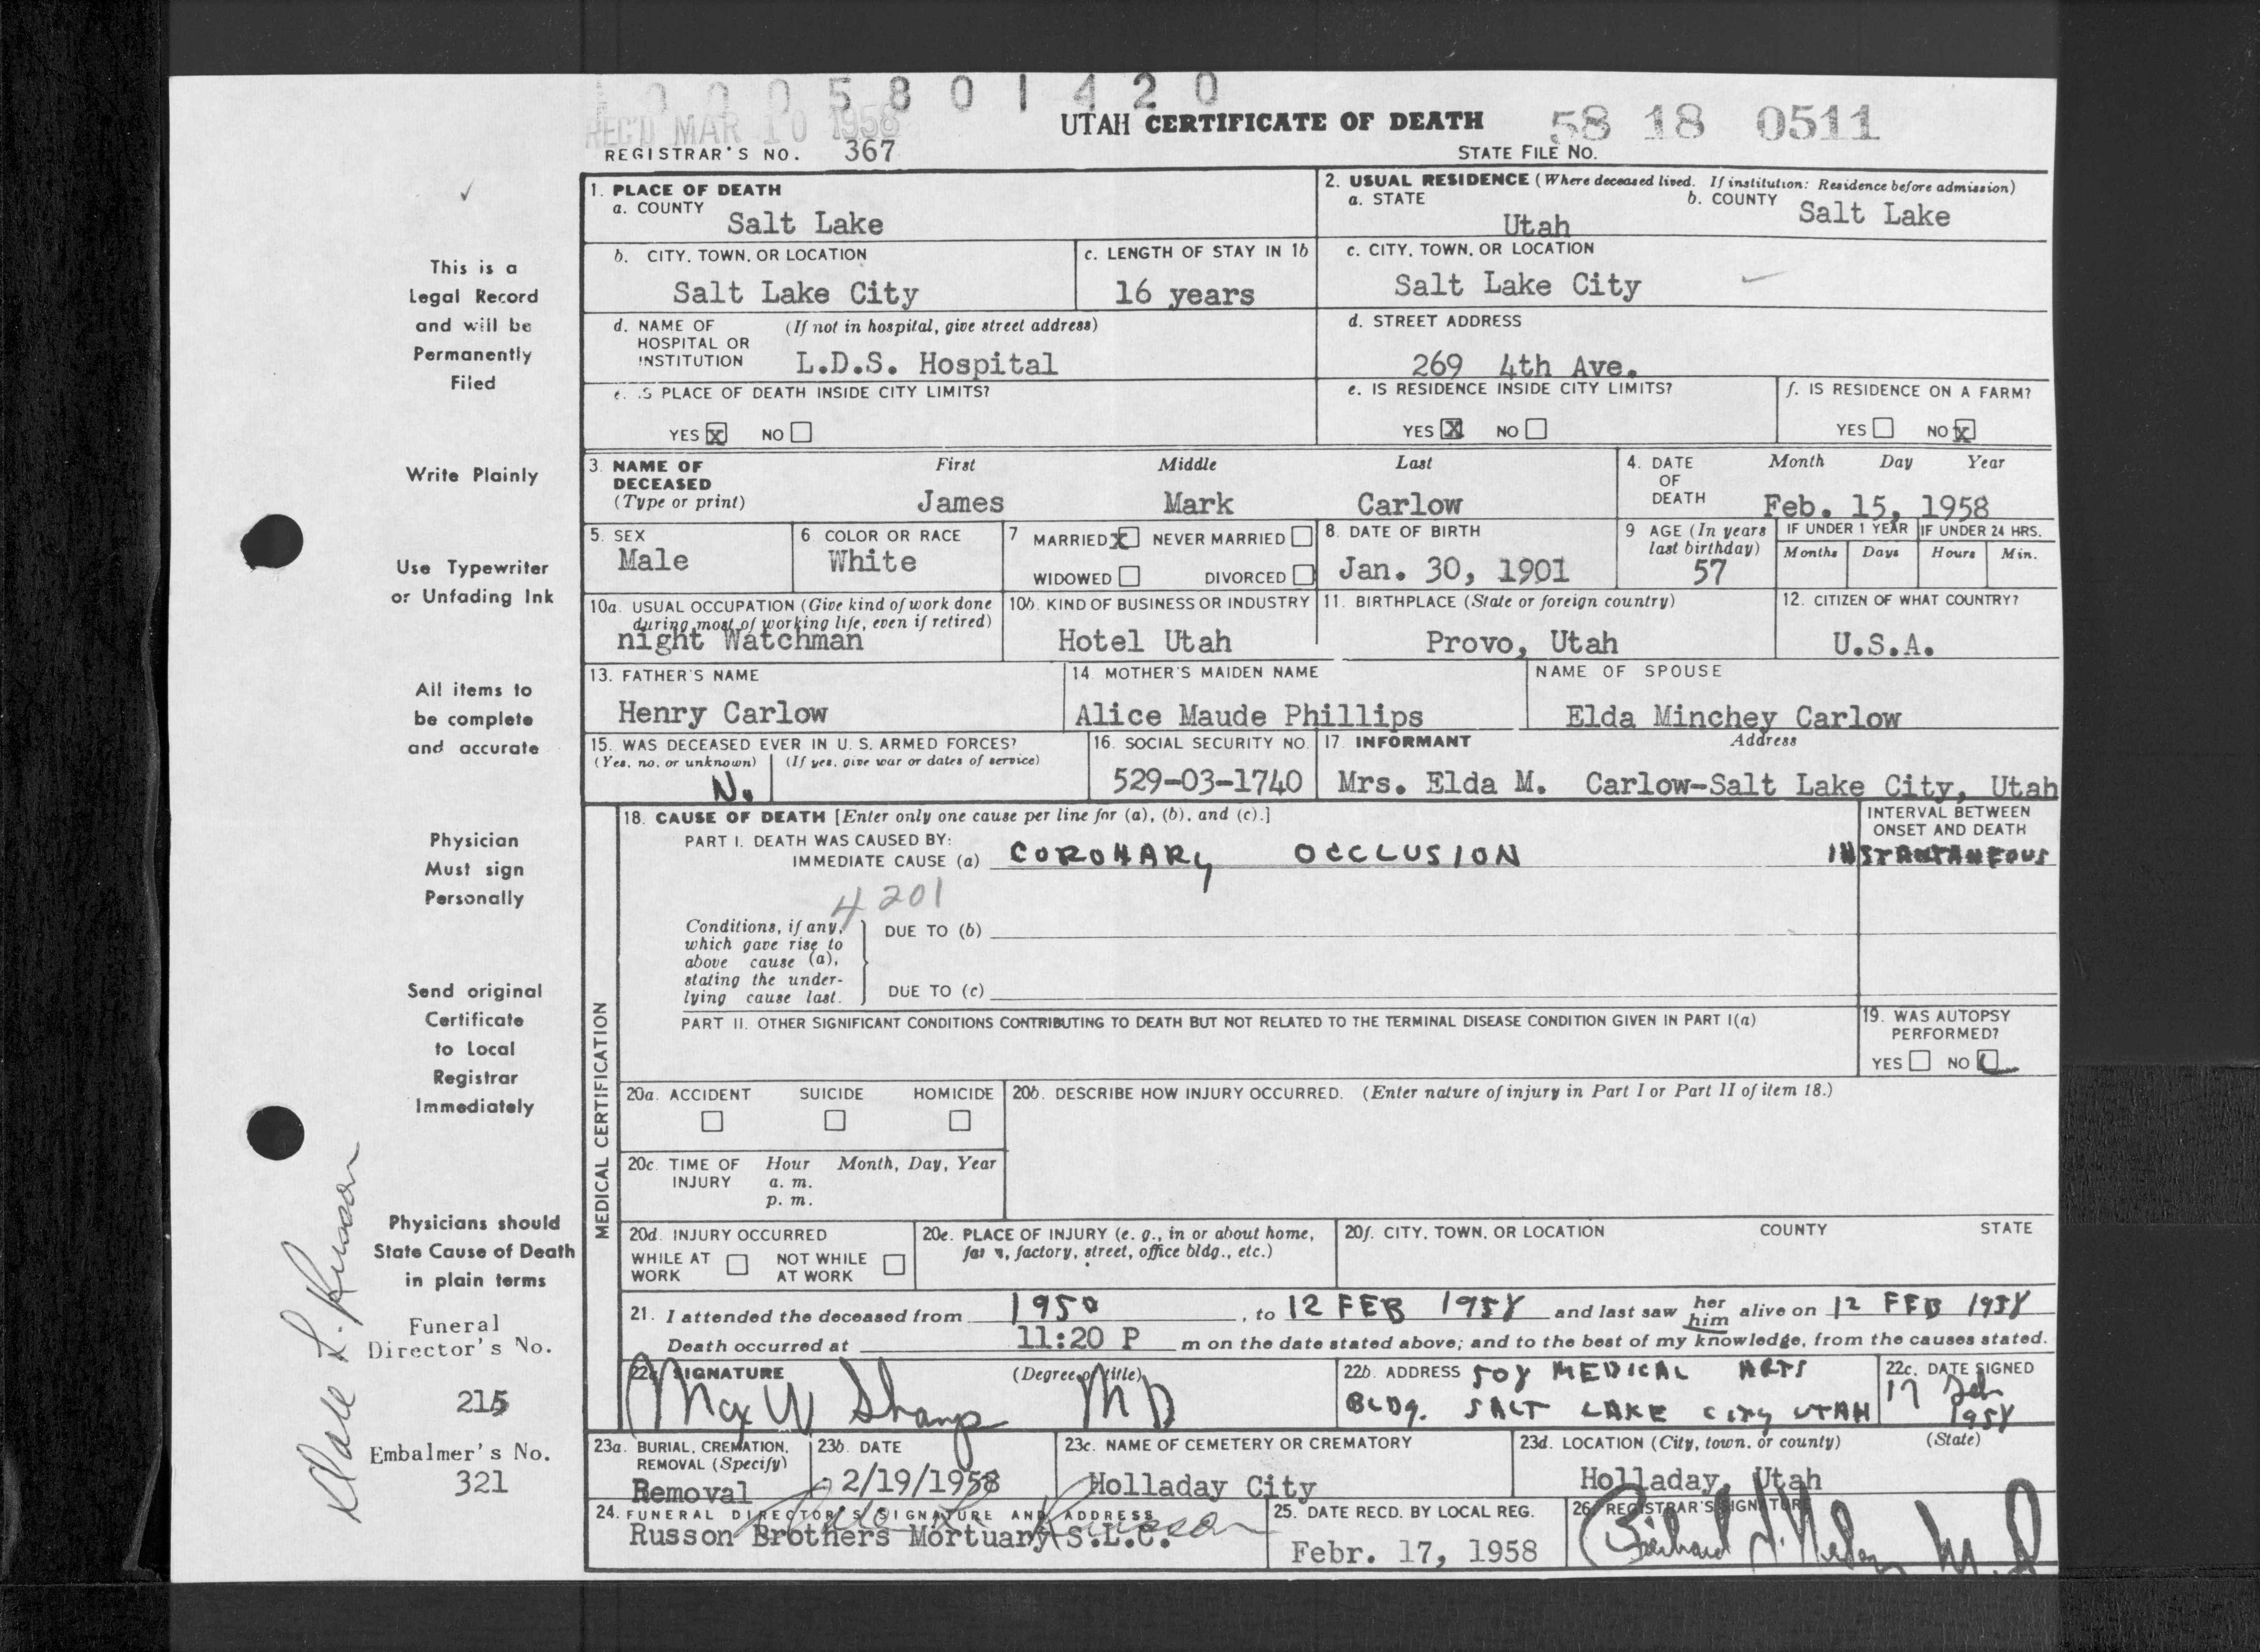 1 0 0 0 5 8 0 1 4 2 0
REC'D MAR 10 1958
UTAH CERTIFICATE OF DEATH
58 18 0511
REGISTRAR'S NO. 367
STATE FILE NO.
This is a
Legal Record
and will be
Permanently
Filed
Write Plainly
Use Typewriter
or Unfading Ink
All items to
be complete
and accurate
Physician
Must sign
Personally
Send original
Certificate
to Local
Registrar
Immediately
Physicians should
State Cause of Death
in plain terms
Funeral
Director's No.
215
Embalmer's No.
321
1. PLACE OF DEATH
a. COUNTY
Salt Lake
2. USUAL RESIDENCE (Where deceased lived. If institution: Residence before admission)
a. STATE
Utah
b. COUNTY
Salt Lake
b. CITY, TOWN, OR LOCATION
Salt Lake City
c. LENGTH OF STAY IN 1b
16 years
c. CITY, TOWN, OR LOCATION
Salt Lake City
d. NAME OF (If not in hospital, give street address)
HOSPITAL OR
INSTITUTION L.D.S. Hospital
d. STREET ADDRESS
269 4th Ave.
e. IS PLACE OF DEATH INSIDE CITY LIMITS?
YES X NO
e. IS RESIDENCE INSIDE CITY LIMITS?
YES X NO
f. IS RESIDENCE ON A FARM?
YES NO X
3. NAME OF
DECEASED
(Type or print)
First Middle Last
James Mark Carlow
4. DATE
OF
DEATH
Month Day Year
Feb. 15, 1958
5. SEX
Male
6. COLOR OR RACE
White
7 MARRIED X NEVER MARRIED
WIDOWED DIVORCED
8. DATE OF BIRTH
Jan. 30, 1901
9 AGE (In years
last birthday)
57
IF UNDER 1 YEAR
Months Days
IF UNDER 24 HRS.
Hours Min.
10a. USUAL OCCUPATION (Give kind of work done
during most of working life, even if retired)
night Watchman
10b. KIND OF BUSINESS OR INDUSTRY
Hotel Utah
11. BIRTHPLACE (State or foreign country)
Provo, Utah
12. CITIZEN OF WHAT COUNTRY?
U.S.A.
13. FATHER'S NAME
Henry Carlow
14. MOTHER'S MAIDEN NAME
Alice Maude Phillips
NAME OF SPOUSE
Elda Minchey Carlow
15. WAS DECEASED EVER IN U. S. ARMED FORCES?
(Yes, no, or unknown) (If yes, give war or dates of service)
N.
16. SOCIAL SECURITY NO.
529-03-1740
17. INFORMANT Address
Mrs. Elda M. Carlow-Salt Lake City, Utah
MEDICAL CERTIFICATION
18. CAUSE OF DEATH [Enter only one cause per line for (a), (b), and (c).]
PART I. DEATH WAS CAUSED BY:
IMMEDIATE CAUSE (a) CORONARY OCCLUSION
INTERVAL BETWEEN
ONSET AND DEATH
INSTANTANEOUS
4201
Conditions, if any,
which gave rise to
above cause (a),
stating the under-
lying cause last.
DUE TO (b)
DUE TO (c)
PART II. OTHER SIGNIFICANT CONDITIONS CONTRIBUTING TO DEATH BUT NOT RELATED TO THE TERMINAL DISEASE CONDITION GIVEN IN PART I(a)
19. WAS AUTOPSY
PERFORMED?
YES NO
20a. ACCIDENT SUICIDE HOMICIDE
20b. DESCRIBE HOW INJURY OCCURRED. (Enter nature of injury in Part I or Part II of item 18.)
20c. TIME OF Hour Month, Day, Year
INJURY a. m.
p. m.
20d. INJURY OCCURRED
WHILE AT NOT WHILE
WORK AT WORK
20e. PLACE OF INJURY (e. g., in or about home,
farm, factory, street, office bldg., etc.)
20f. CITY, TOWN, OR LOCATION COUNTY STATE
21. I attended the deceased from 1950, to 12 FEB 1958 and last saw her him alive on 12 FEB 1958
Death occurred at 11:20 P m on the date stated above; and to the best of my knowledge, from the causes stated.
22a. SIGNATURE (Degree or title)
Max W Sharp MD
22b. ADDRESS 508 MEDICAL ARTS
BLDG. SALT LAKE CITY UTAH
22c. DATE SIGNED
17 Feb
1958
23a. BURIAL, CREMATION,
REMOVAL (Specify)
Removal
23b. DATE
2/19/1958
23c. NAME OF CEMETERY OR CREMATORY
Holladay City
23d. LOCATION (City, town, or county) (State)
Holladay, Utah
24. FUNERAL DIRECTOR'S SIGNATURE AND ADDRESS
Russon Brothers Mortuary S.L.C.
25. DATE RECD. BY LOCAL REG.
Febr. 17, 1958
26. REGISTRAR'S SIGNATURE
Dale L. Russon